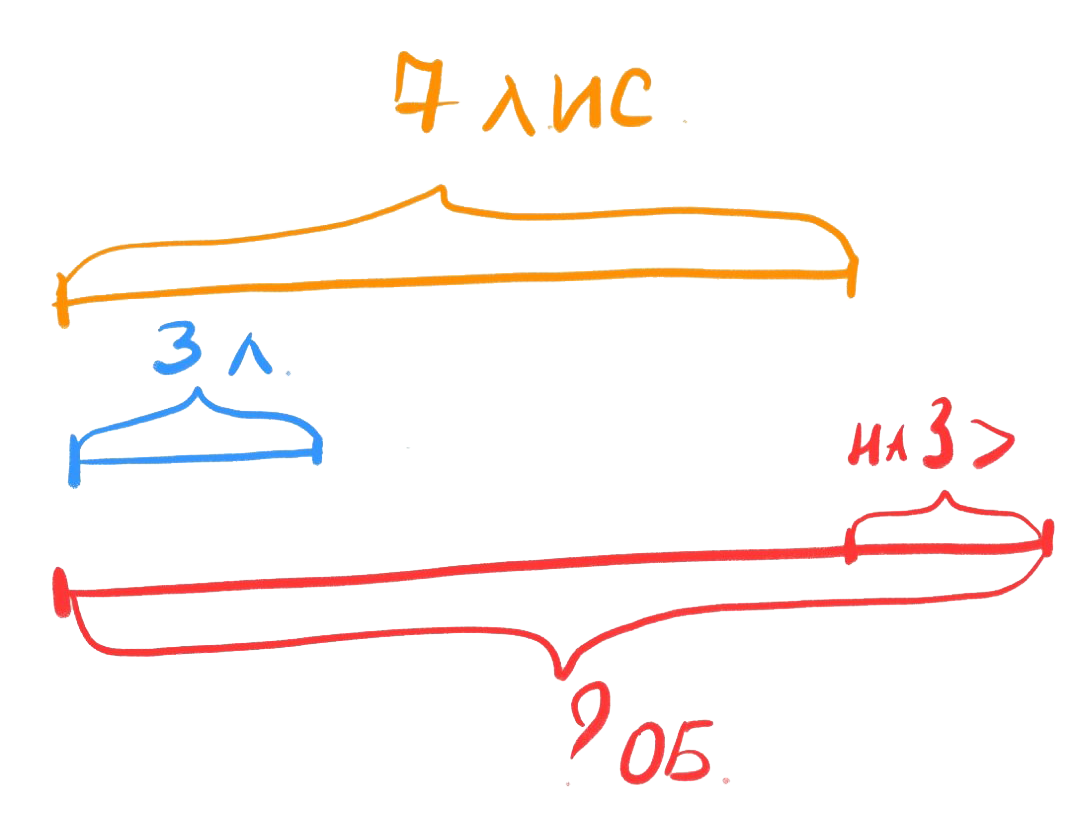 7 лис
3 л.
на 3 >
? ОБ.